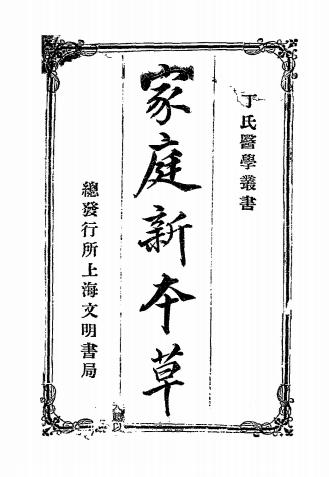 丁氏醫學叢書
家庭新本草
總發行所上海文明書局